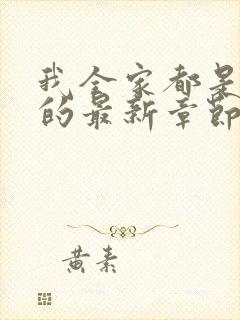 我全家都是
的最新章节
黄素